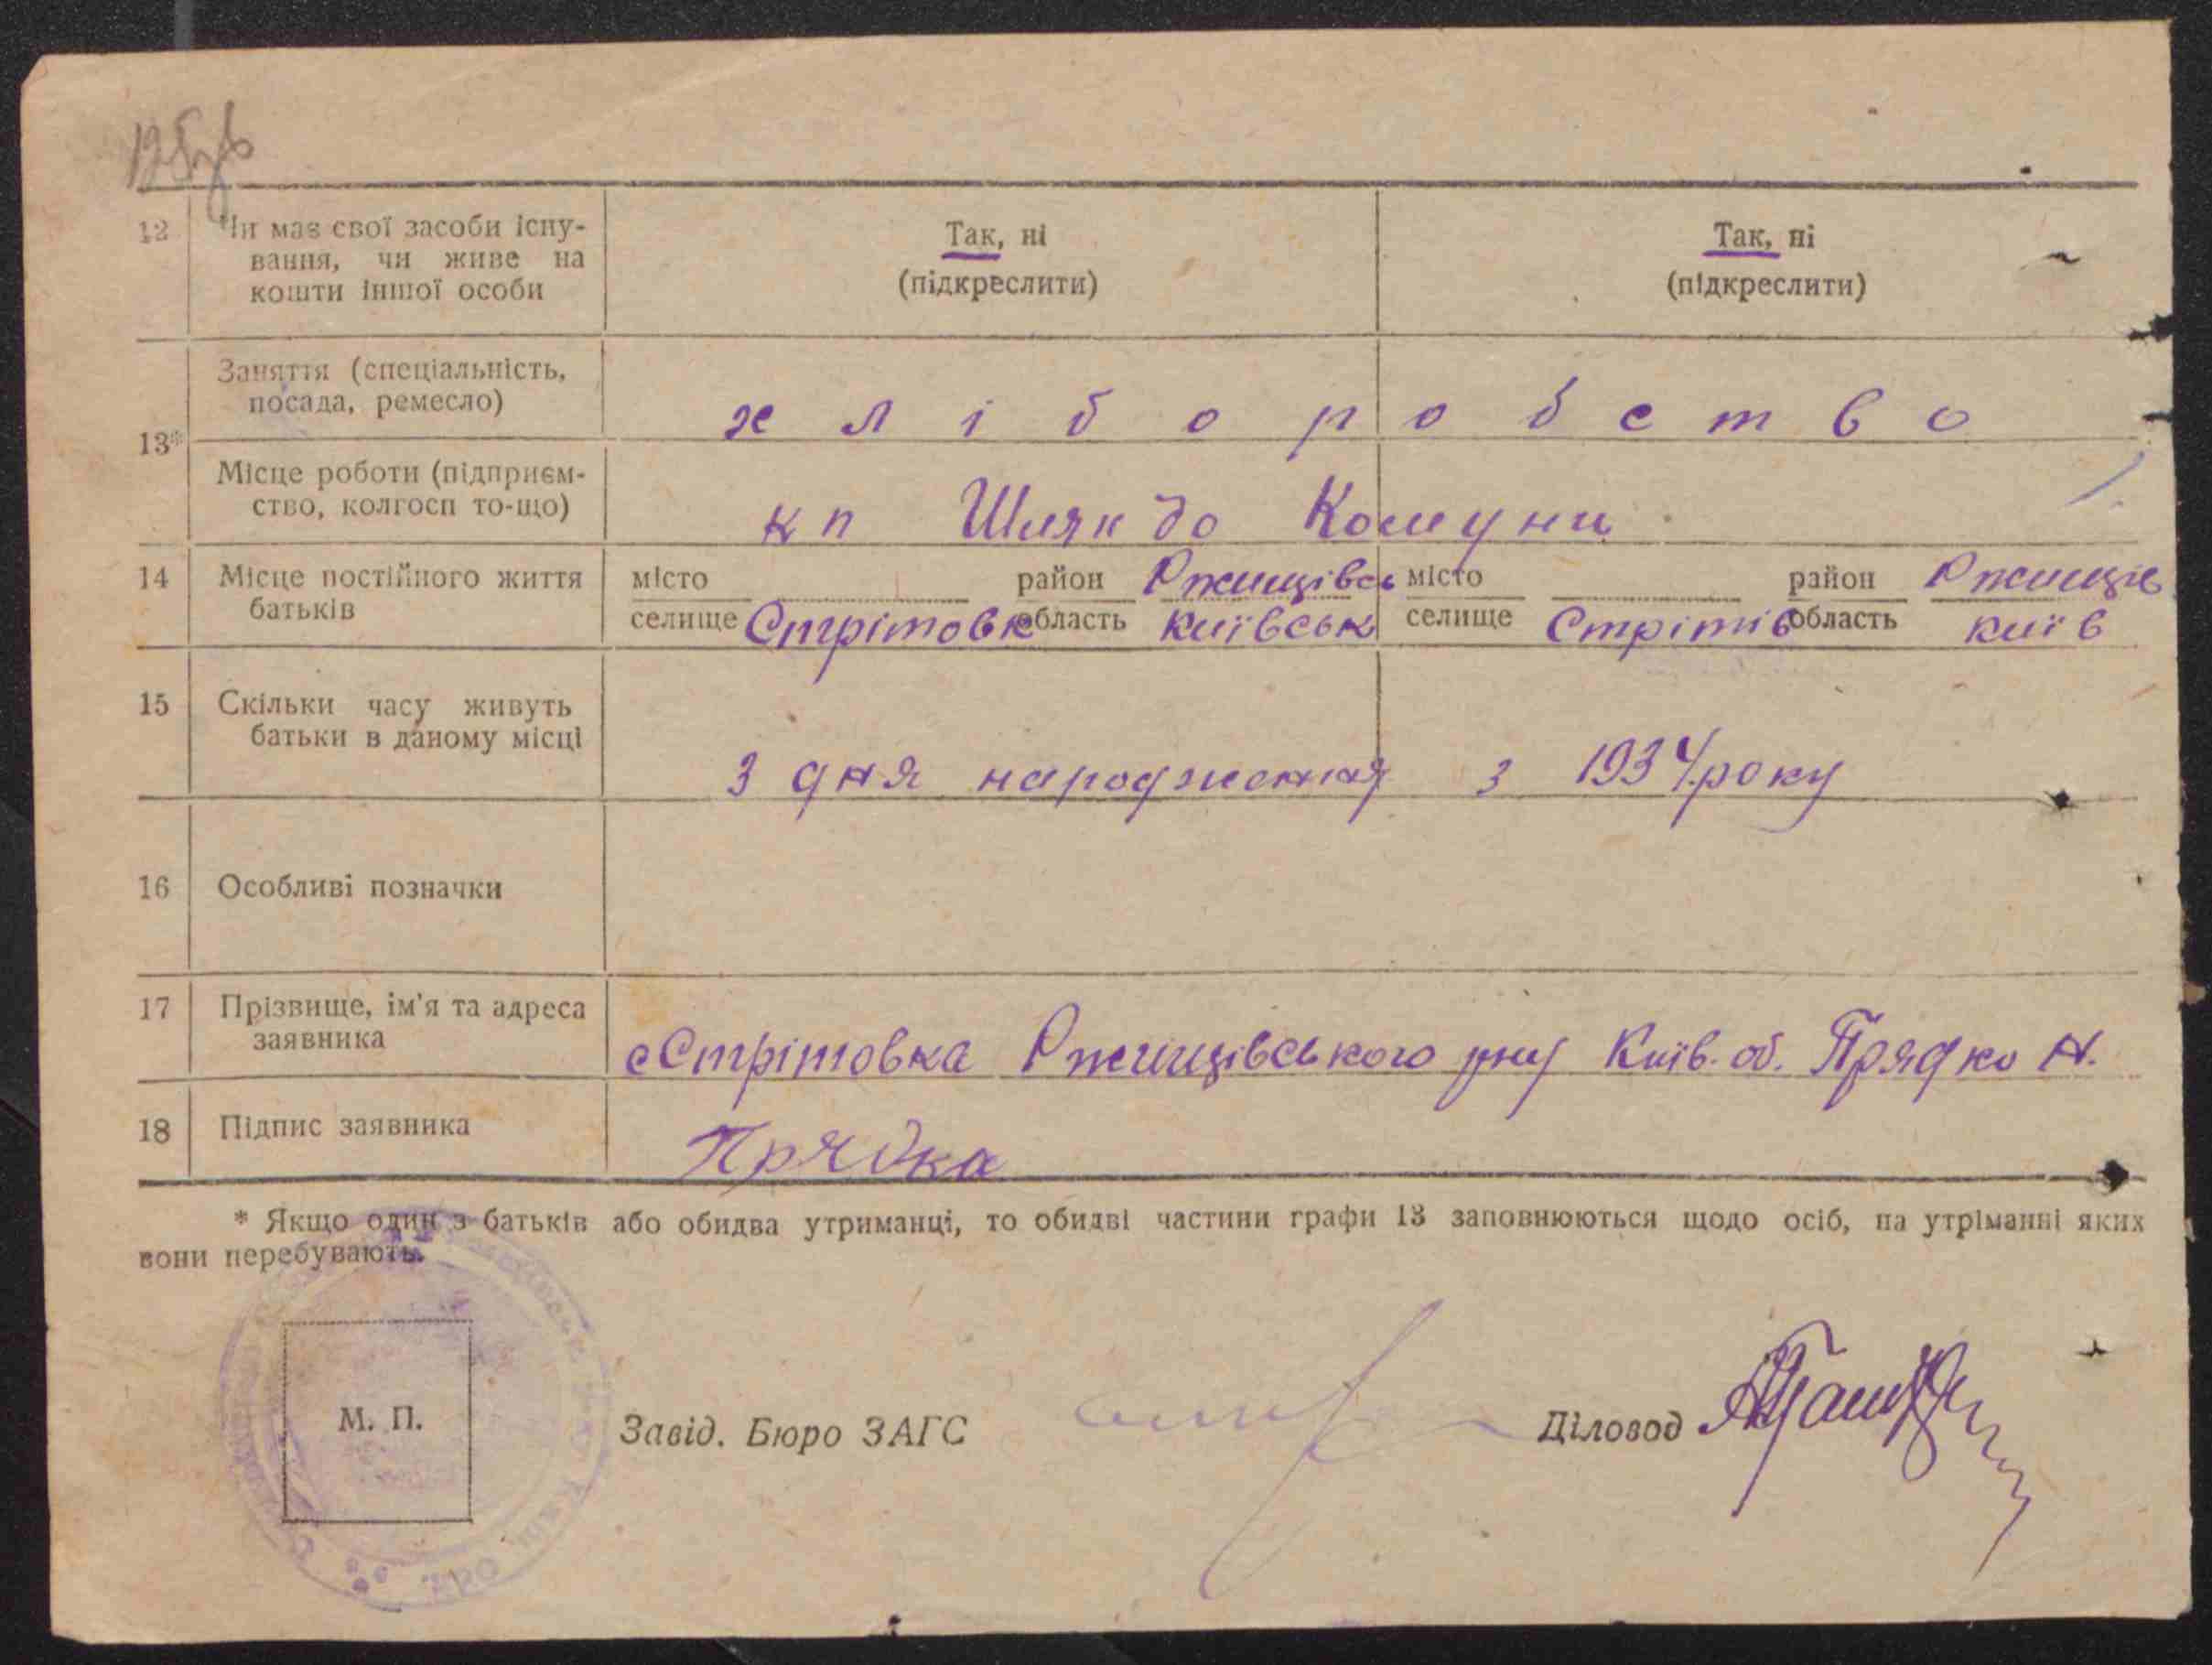 12
Чи має свої засоби існу-
вання, чи живе на
кошти іншої особи
Так, ні
(підкреслити)
Так, ні
(підкреслити)
13*
Заняття (спеціальність,
посада, ремесло)
хліборобство
Місце роботи (підприєм-
ство, колгосп то-що)
кп Шлях до Комуни
14
Місце постійного життя
батьків
місто район Ржищівсь
селище Стрітовк область Київськ
місто район Ржищів
селище Стрітів область Київ
15
Скільки часу живуть
батьки в даному місці
З дня народження
з 1934 року
16
Особливі позначки
17
Прізвище, ім'я та адреса
заявника
с Стрітовка Ржищівського рну Київ. об. Прядко Н.
18
Підпис заявника
Прядка
* Якщо один з батьків або обидва утриманці, то обидві частини графи 13 заповнюються щодо осіб, на утріманні яких
вони перебувають.
М. П.
Завід. Бюро ЗАГС
Діловод